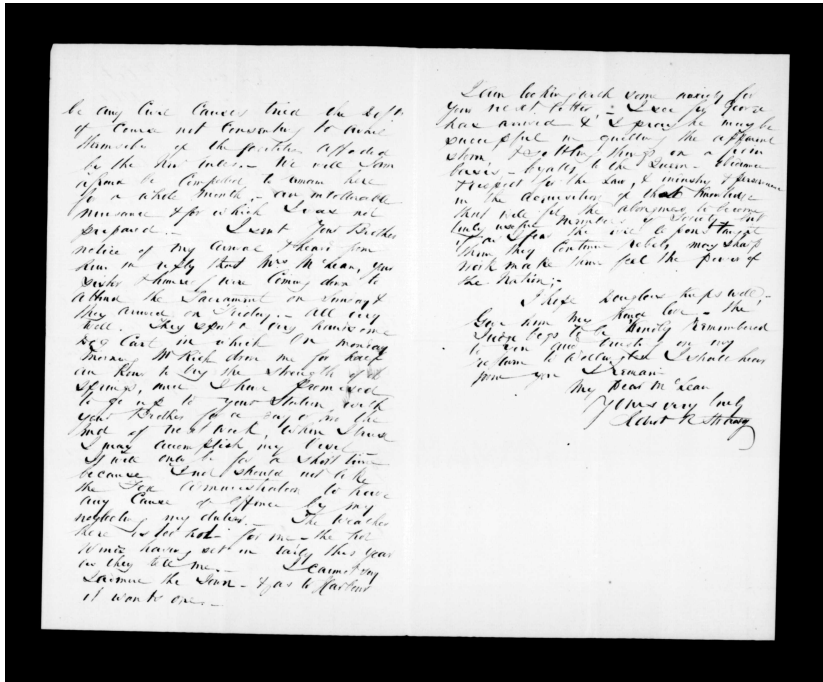 be any Civil Causes tried the
of Course not Consenting to avail
themselves of the facilities afforded
by the new rules. - We will I am
afraid be Compelled to remain here
for a whole Month - an intolerable
nuisance & for which I was not
prepared. - I sent Your Brother
notice of my arrival & hear from
him in reply that Mrs McLean, your
sister & himself were Coming down to
attend the Sacrament on Sunday &
they arrived on Friday. - all very
well. They sport a very handsome
Dog Cart in which on Monday
Morning drove me for half
an hour to try the strength of the
Springs, and I have promised
to go up to your Station with
your Brother for a day or two the
end of next week, when I trust
I may accomplish my
It will only be for a short time
because I should not like
the Fox Administration to have
any Cause of offence by my
neglecting my duties. - The Weather
here is too hot for me - the hot
winds having set in early this year
as they tell me. - I cannot say
I admire the Town - & as to Harbour
it wants one. -
I am looking with some anxiety for
your next letter: - I see Sir George
has arrived & I pray he may be
successful in quelling the
storm & settling things on a firm
basis, - loyalty to the Queen obedience
& respect for the Law, & industry & perseverance
in the acquisition of that Knowledge
that will fit the aborigines to become
truly useful Members of Society, but
if as I fear the
them they continue rebels, may sharp
work make them feel the power of
the Nation; -
I hope Douglas keeps well, -
Give him my kind love - the
Judge begs to be kindly remembered
to you and on my
return to Wellington I shall hear
from you I Remain
My Dear McLean
Yours very truly
Robert R Strang